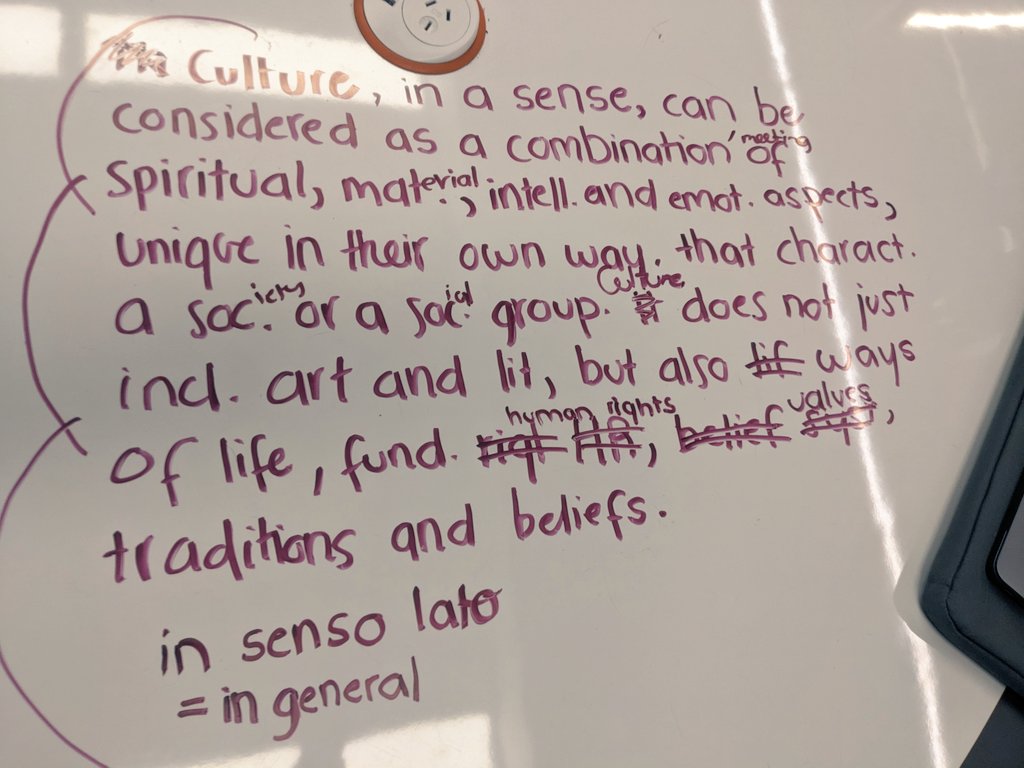 Culture, in a sense, can be
considered as a combination ' meeting of
spiritual, material, intell. and emot. aspects,
unique in their own way. that charact.
a soc.iety or a soc.ial group. Culture does not just
incl. art and lit, but also lif ways
of life, fund. human rights, belief values,
traditions and beliefs.
in senso lato
= in general